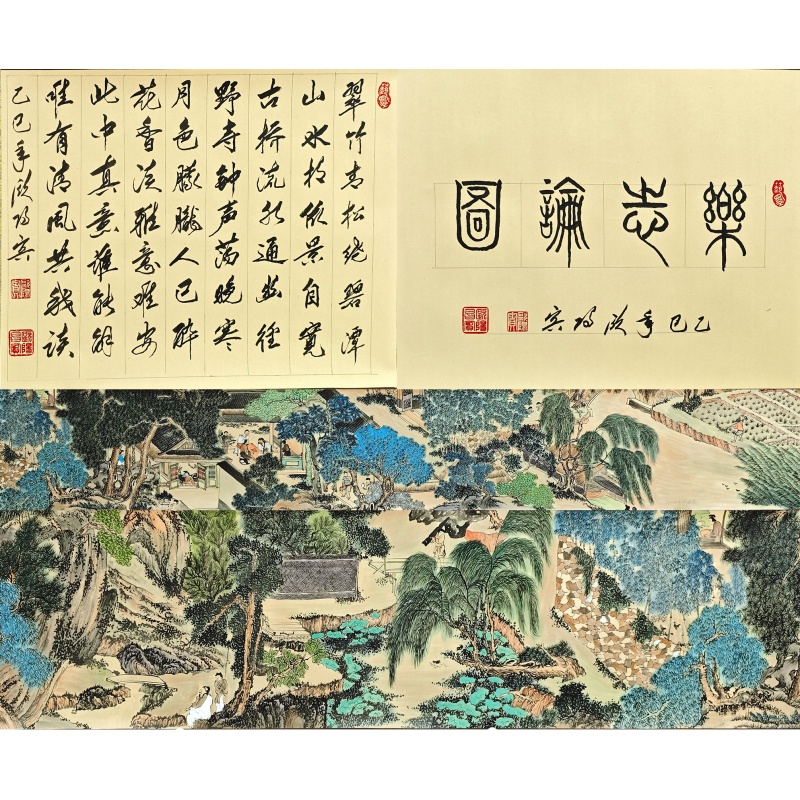 樂志論圖
乙巳年
翠竹青松绕碧潭
山水相依景自宽
古桥流水通幽径
野寺钟声荡晚寒
月色朦胧人已醉
花香淡雅意难安
此中真意谁能解
唯有清风共我谈
乙巳年